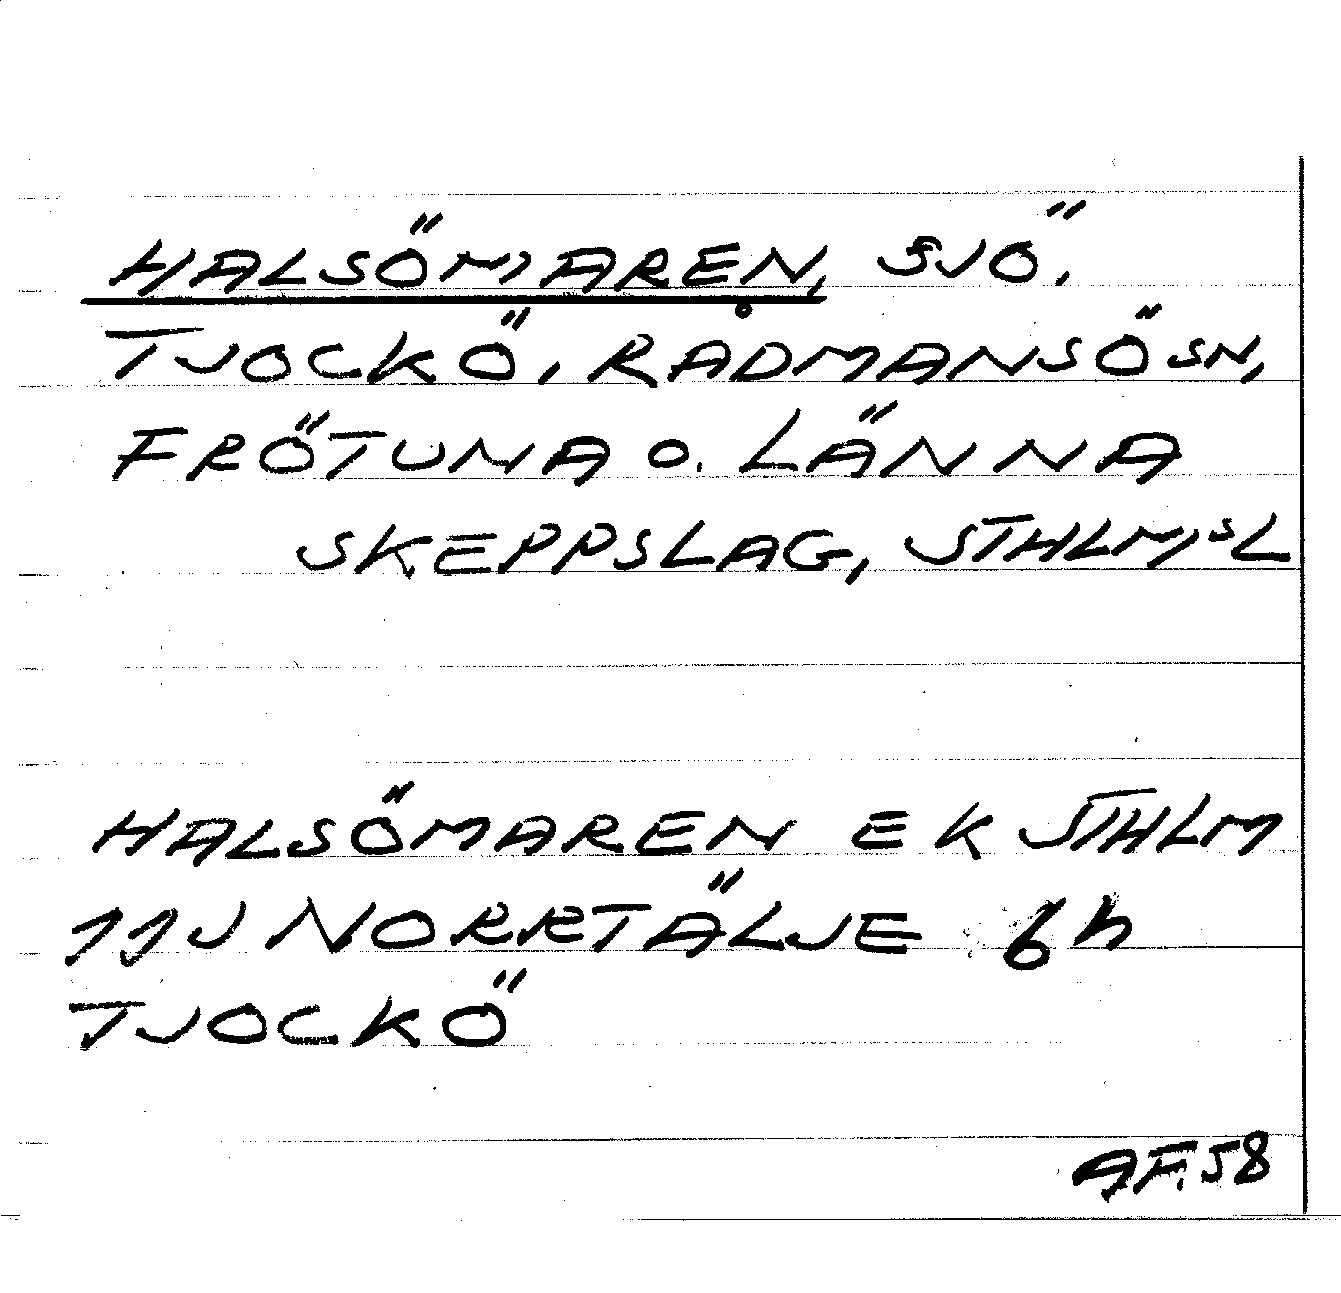 HALSÖMAREN, SJÖ,
TJOCKÖ, RÅDMANSÖ SN,
FRÖTUNA O. LÄNNA
SKEPPSLAG, STHLMSL
HALSÖMAREN EK STHLM
11J NORRTÄLJE 6h
TJOCKÖ
AF. 58